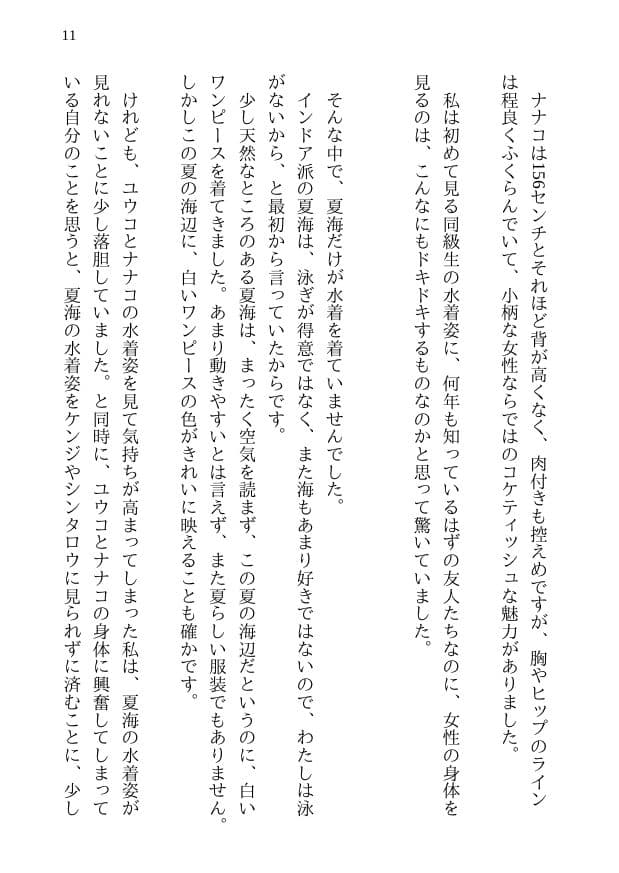 11
ナナコは156センチとそれほど背が高くなく、肉付きも控えめですが、胸やヒップのライン
は程良くふくらんでいて、小柄な女性ならではのコケティッシュな魅力がありました。
私は初めて見る同級生の水着姿に、何年も知っているはずの友人たちなのに、女性の身体を
見るのは、こんなにもドキドキするものなのかと思って驚いていました。
そんな中で、夏海だけが水着を着ていませんでした。
インドア派の夏海は、泳ぎが得意ではなく、また海もあまり好きではないので、わたしは泳
がないから、と最初から言っていたからです。
少し天然なところのある夏海は、まったく空気を読まず、この夏の海辺だというのに、白い
ワンピースを着てきました。あまり動きやすいとは言えず、また夏らしい服装でもありません。
しかしこの夏の海辺に、白いワンピースの色がきれいに映えることも確かです。
けれども、ユウコとナナコの水着姿を見て気持ちが高まってしまった私は、夏海の水着姿が
見れないことに少し落胆していました。と同時に、ユウコとナナコの身体に興奮してしまって
いる自分のことを思うと、夏海の水着姿をケンジやシンタロウに見られずに済むことに、少し